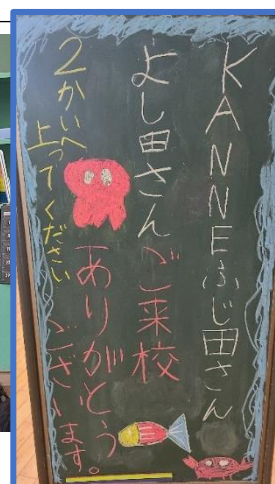 KANNEふじ田さん
よし田さんご来校
ありがとう
ございます。
2かいへ
上ってください